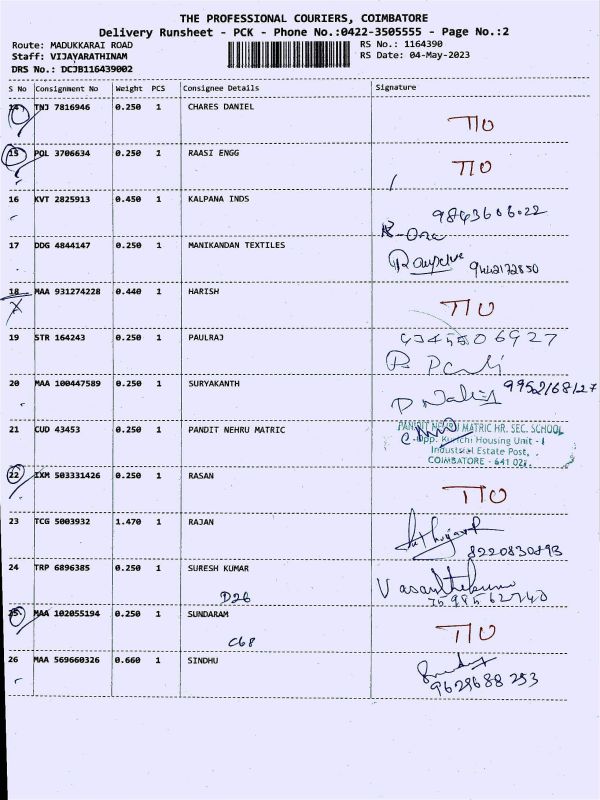 THE PROFESSIONAL COURIERS, COIMBATORE
Delivery Runsheet - PCK - Phone No.:0422-3505555 - Page No.:2
Route: MADUKKARAI ROAD RS No.: 1164390
Staff: VIJAYARATHINAM RS Date: 04-May-2023
DRS No.: DCJB116439002
S No Consignment No Weight PCS Consignee Details Signature
14 TNJ 7816946 0.250 1 CHARES DANIEL
T10
15 POL 3706634 0.250 1 RAASI ENGG
T10
16 KVT 2825913 0.450 1 KALPANA INDS
17 DDG 4844147 0.250 1 MANIKANDAN TEXTILES
9442172850
18 MAA 931274228 0.440 1 HARISH
T10
19 STR 164243 0.250 1 PAULRAJ
20 MAA 100447589 0.250 1 SURYAKANTH
21 CUD 43453 0.250 1 PANDIT NEHRU MATRIC
PANDIT NEHRU MATRIC HR. SEC. SCHOOL
Opp. Kurichi Housing Unit - I
Industrial Estate Post,
COIMBATORE - 641 021.
22 IXM 503331426 0.250 1 RASAN
T10
23 TCG 5003932 1.470 1 RAJAN
8220830893
24 TRP 6896385 0.250 1 SURESH KUMAR
D26
25 MAA 102055194 0.250 1 SUNDARAM
T10
C68
26 MAA 569660326 0.660 1 SINDHU
9629688253